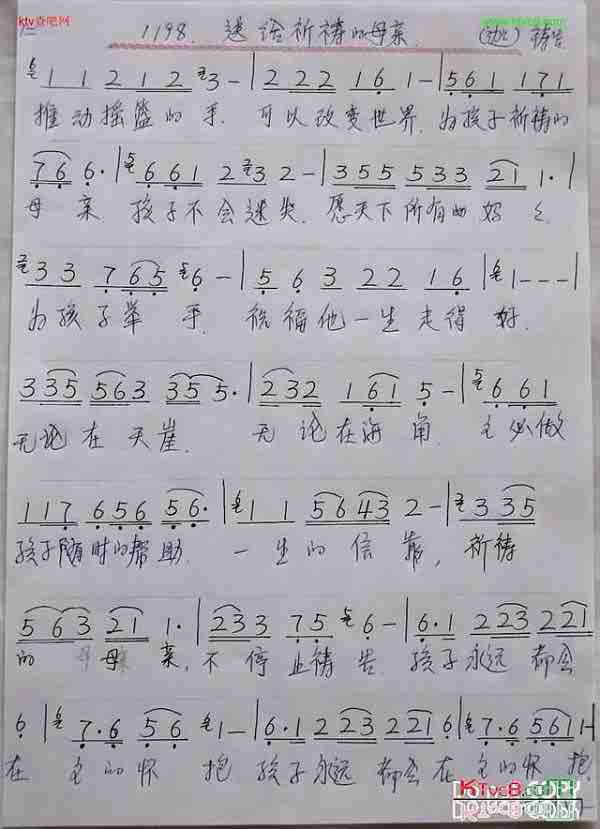 ktv查吧网
www.ktvc8.com
1198. 送给祈祷的母亲. (迦) 祷告
1 1 2 1 2 3 - | 2 2 2 1 6 1 - | 5 6 1 1 7 1
推动摇篮的手. 可以改变世界. 为孩子祈祷的
7 6 6 · | 6 6 1 2 3 2 - | 3 5 5 5 3 3 2 1 1 · |
母亲 孩子不会迷失. 愿天下所有的妈妈
3 3 7 6 5 6 - | 5 6 3 2 2 1 6 | 1 - - -
为孩子举手. 祝福他一生走得好.
3 3 5 5 6 3 3 5 5 · | 2 3 2 1 6 1 5 - | 6 6 1
无论在天崖. 无论在海角 主必做
1 1 7 6 5 6 5 6 · | 1 1 5 6 4 3 2 - | 3 3 5
孩子随时的帮助. 一生的信靠, 祈祷
5 6 3 2 1 1 · | 2 3 3 7 5 6 - | 6 · 1 2 2 3 2 2 1
的母亲, 不停止祷告. 孩子永远都会
6 | 7 · 6 5 6 1 - | 6 · 1 2 2 3 2 2 1 6 | 7 · 6 5 6 1 1 -
在主的怀抱 孩子永远都会在主的怀抱.
Ktvc8.COPY